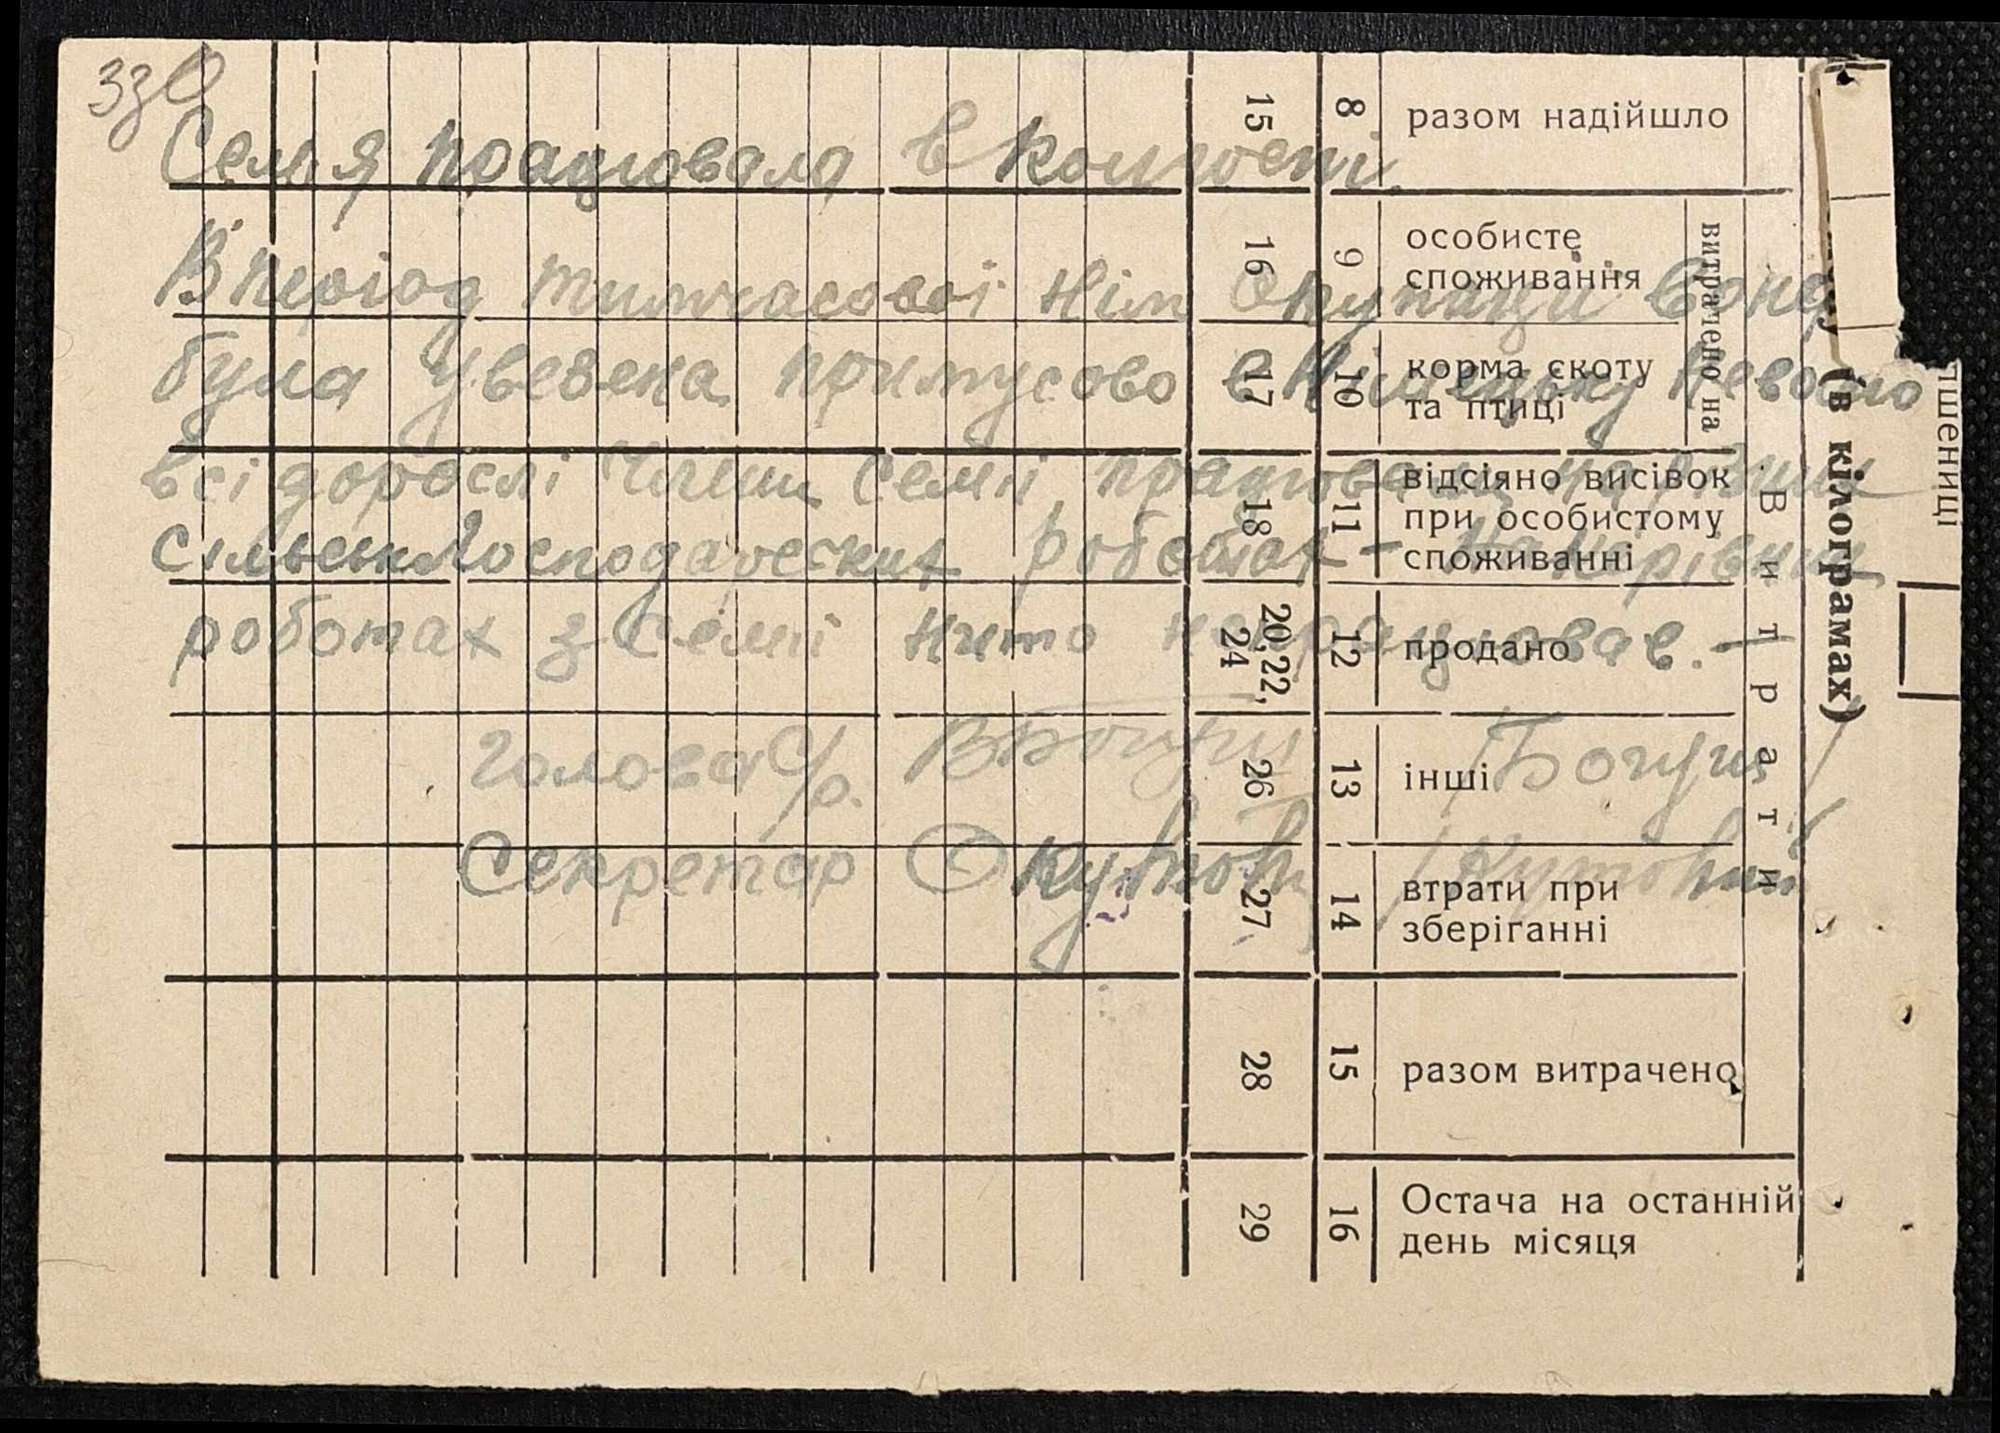 330
Семья працювала в колгоспі.
В період тимчасової нім окупації вона
була увезена примусово в Німецьку неволю
всі дорослі члени семії працювали на різних
сільськгосподарських роботах – на керівних
роботах з семії нихто не працював. –
Голова С/р. /Богуш/
Секретар Кутов /Кутовий/
(в кілограмах)
пшениці
Витрати
витрачено на
разом надійшло
8
15
особисте
споживання
9
16
корма скоту
та птиці
10
17
відсіяно висівок
при особистому
споживанні
11
18
продано
12
20,22,
24
інші
13
26
втрати при
зберіганні
14
27
разом витрачено
15
28
Остача на останній
день місяця
16
29